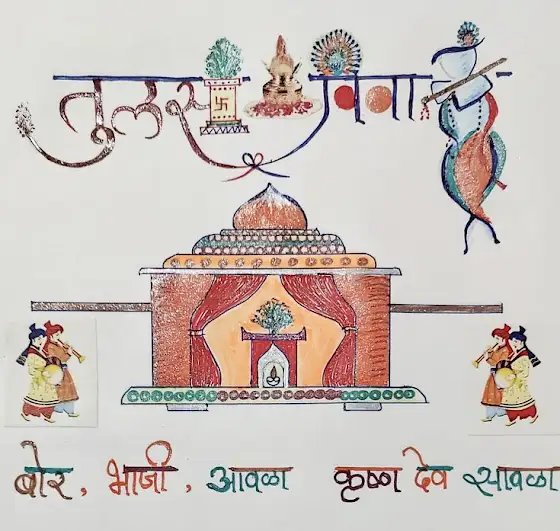 तुलसी विवाह
बोर, भाजी, आवळा कृष्ण देव सावळा